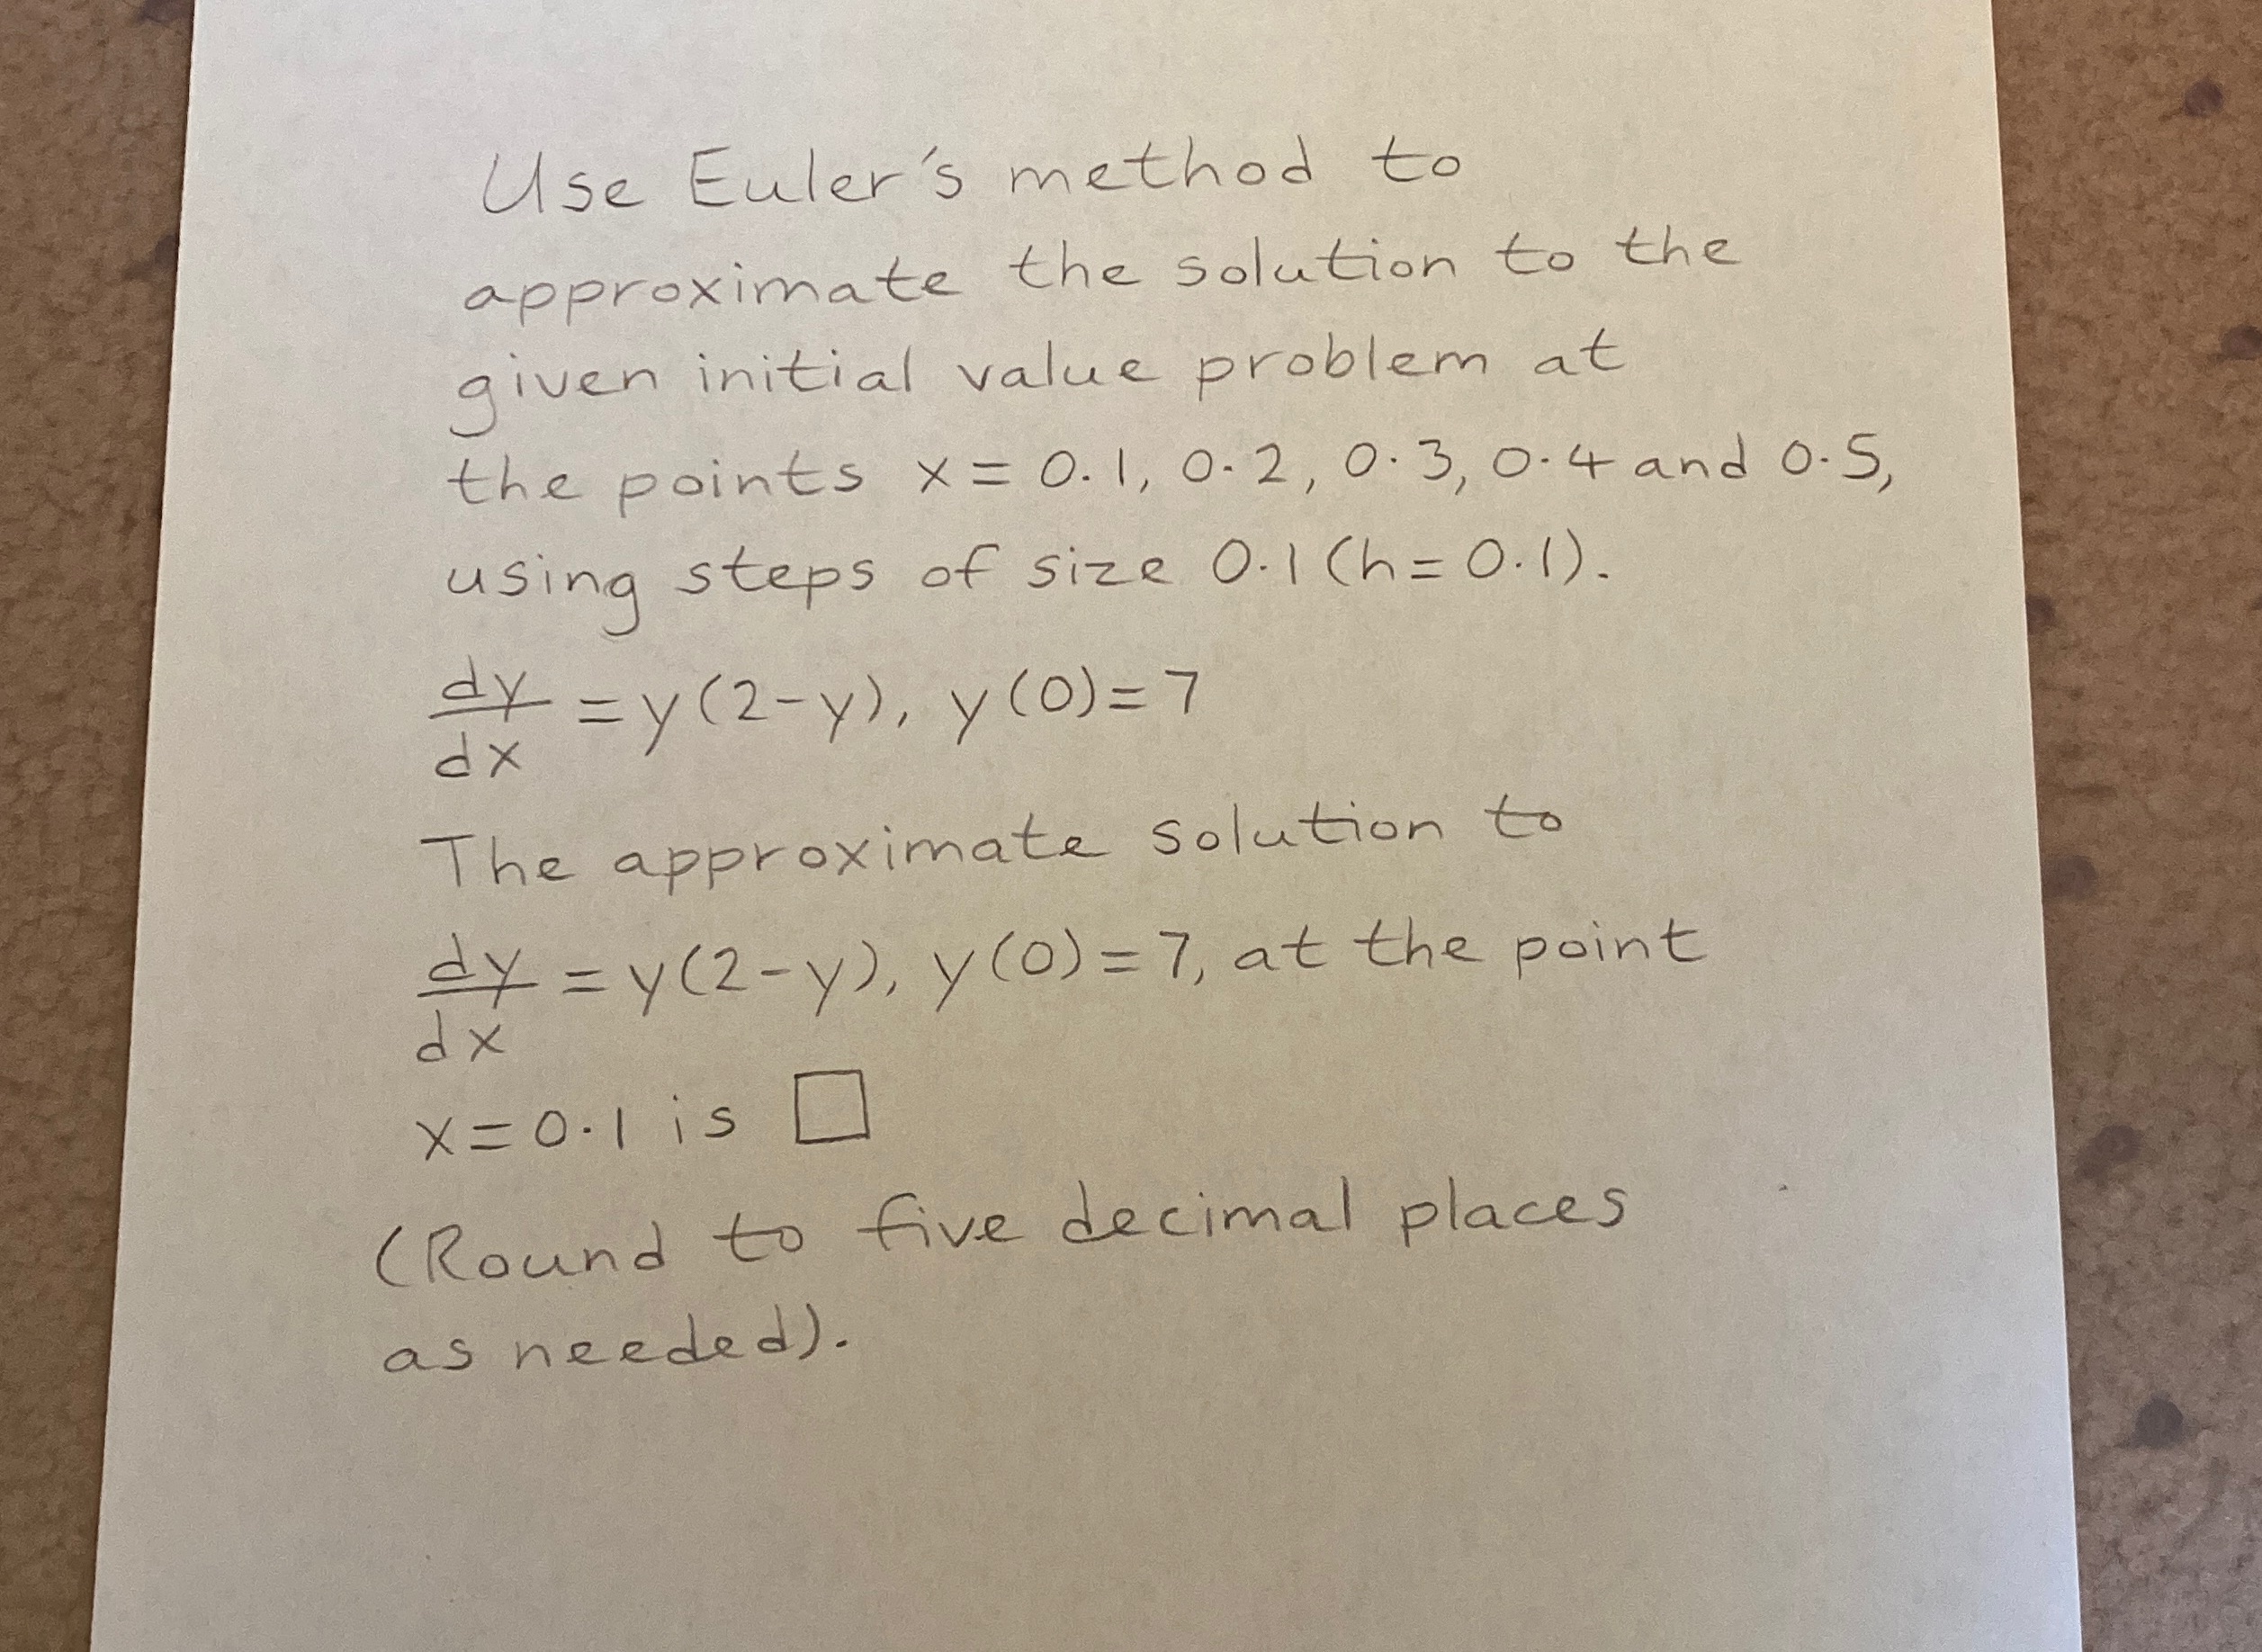 Use Euler's method to
approximate the solution to the
given initial value problem at
the points x = 0.1, 0.2, 0.3, 0.4 and 0.5,
using steps of size 0.1 (h = 0.1).
dy/dx = y(2-y), y(0) = 7
The approximate solution to
dy/dx = y(2-y), y(0) = 7, at the point
x = 0.1 is □
(Round to five decimal places
as needed).